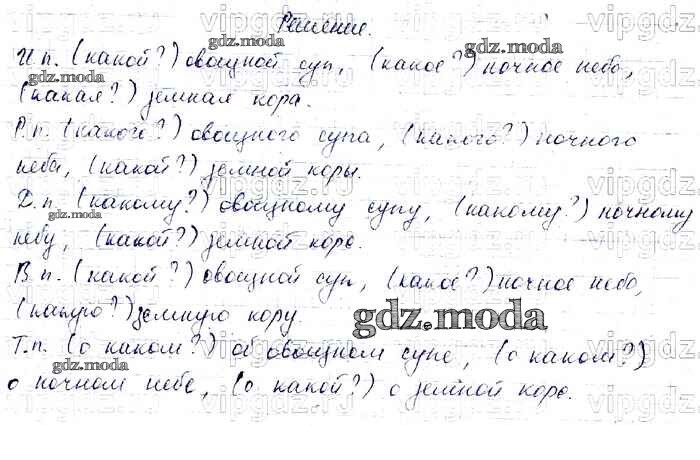 Решение.
И.п. (какой?) овощной суп, (какое?) ночное небо,
(какая?) земная кора.
Р.п. (какого?) овощного супа, (какого?) ночного
неба, (какой?) земной коры.
Д.п. (какому?) овощному супу, (какому?) ночному
небу, (какой?) земной коре.
В.п. (какой?) овощной суп, (какое?) ночное небо,
(какую?) земную кору.
Т.п. (о каком?) об овощном супе, (о каком?)
о ночном небе, (о какой?) о земной коре.
gdz.moda
gdz.moda
gdz.moda
gdz.moda
gdz.moda
gdz.moda
vipgdz.ru